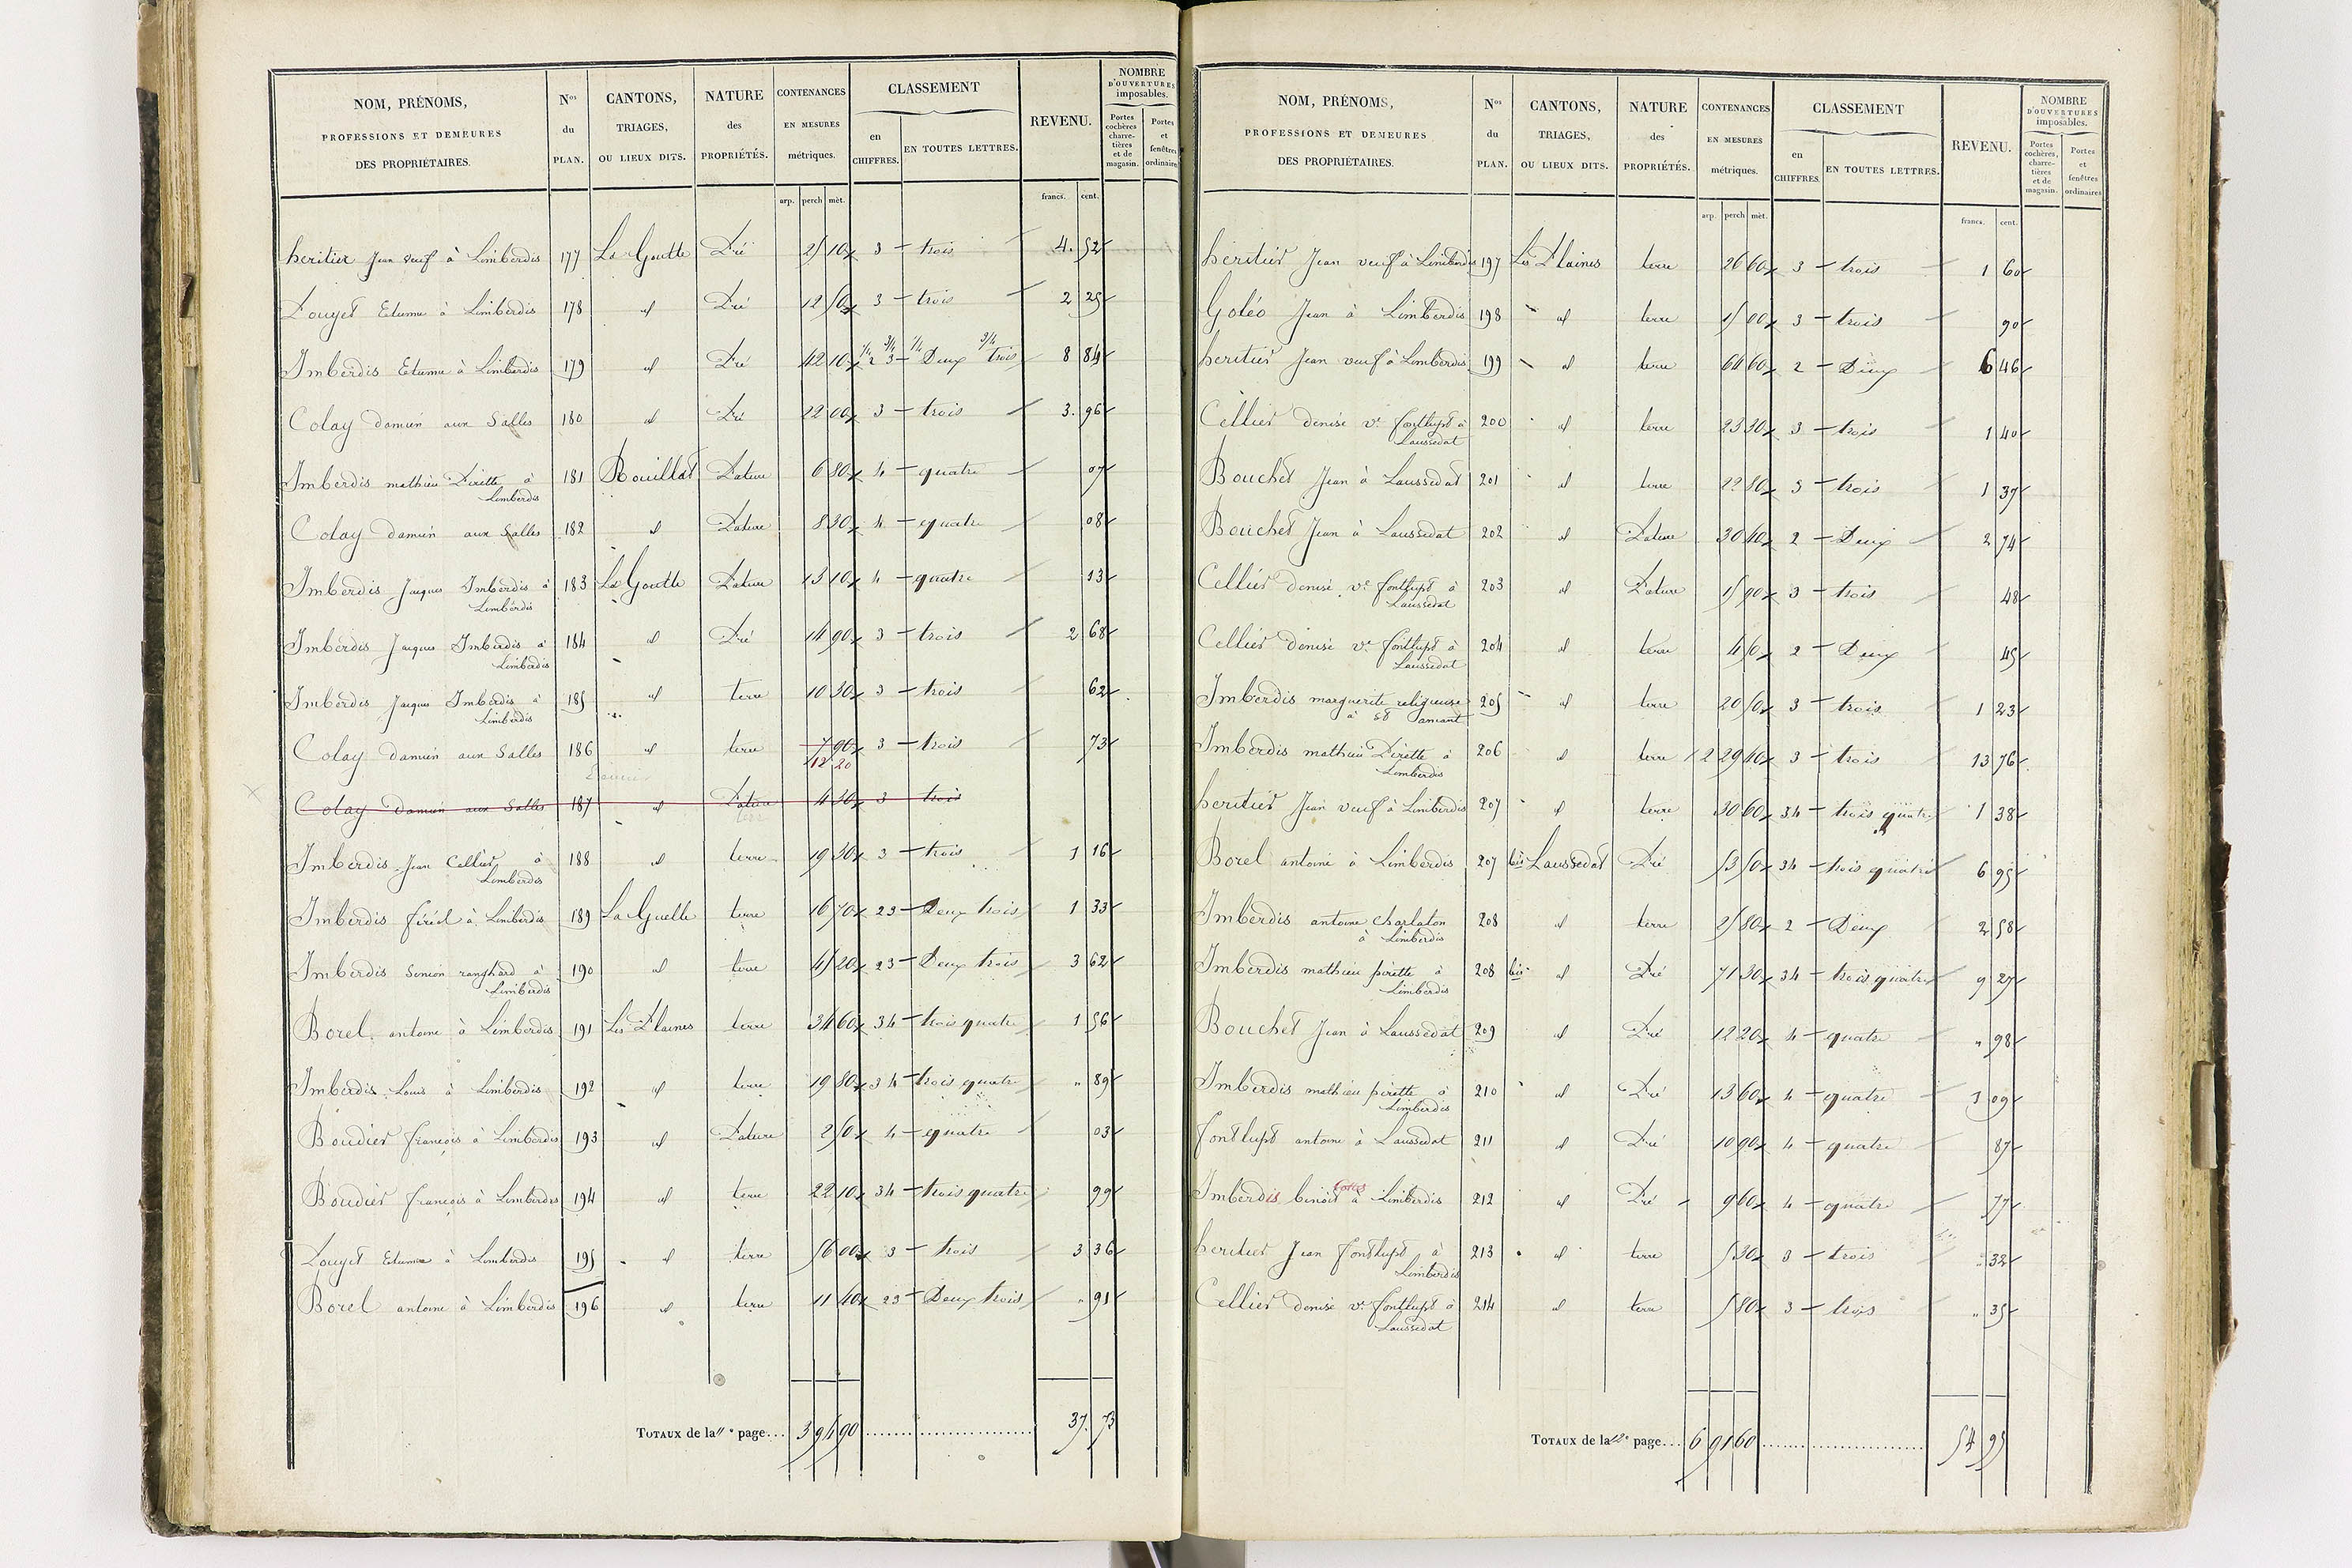 NOM, PRÉNOMS, PROFESSIONS ET DEMEURES DES PROPRIÉTAIRES. Nos du PLAN. CANTONS, TRIAGES, OU LIEUX DITS. NATURE des PROPRIÉTÉS. CONTENANCES EN MESURES métriques. CLASSEMENT en CHIFFRES. EN TOUTES LETTRES. REVENU. NOMBRE D'OUVERTURES imposables. Portes cochères charretières et de magasin. Portes et fenêtres ordinaires
arp. perch mèt. francs. cent.
heritier Jean veuf à Limberdis 177 La Goutte Pré 25 10 3 trois 4. 52
Pouyet Etienne à Limberdis 178 id Pré 12 50 3 trois 2 25
Imberdis Etienne à Limberdis 179 id Pré 42 10 1/4 2 3/4 3 1/4 Deux 3/4 trois 8 84
Colay damien aux Salles 180 id Pré 22 00 3 trois 3. 96
Imberdis mathieu Pirette à Limberdis 181 Rouillat Pature 6 80 4 quatre 07
Colay damien aux Salles 182 id Pature 8 30 4 quatre 08
Imberdis Jacques Imberdis à Limberdis 183 La Goutte Pature 13 10 4 quatre 13
Imberdis Jacques Imberdis à Limberdis 184 id Pré 14 90 3 trois 2 68
Imberdis Jacques Imberdis à Limberdis 185 id terre 10 30 3 trois 62
Colay damien aux Salles 186 id terre 7 90 3 trois 73
12 20
Colay damien aux Salles 187 id Pature 4 30 3 trois
Imberdis Jean Cellier à Limberdis 188 id terre 19 30 3 trois 1 16
Imberdis feréol à Limberdis 189 La Guelle terre 16 70 23 Deux trois 1 33
Imberdis Simon ranghard à Limberdis 190 id terre 45 20 23 Deux trois 3 62
Borel antoine à Limberdis 191 Les Plaines terre 34 60 34 trois quatre 1 56
Imberdis Louis à Limberdis 192 id terre 19 80 34 trois quatre " 89
Boudier françois à Limberdis 193 id Pature 2 50 4 quatre 03
Boudier françois à Limberdis 194 id terre 22 10 34 trois quatre 99
Pouyet Etienne à Limberdis 195 id terre 56 00 3 trois 3 36
Borel antoine à Limberdis 196 id terre 11 40 23 Deux trois " 91
TOTAUX de la 11e page... 3 94 90 37. 73
NOM, PRÉNOMS, PROFESSIONS ET DEMEURES DES PROPRIÉTAIRES. Nos du PLAN. CANTONS, TRIAGES, OU LIEUX DITS. NATURE des PROPRIÉTÉS. CONTENANCES EN MESURES métriques. CLASSEMENT en CHIFFRES. EN TOUTES LETTRES. REVENU. NOMBRE D'OUVERTURES imposables. Portes cochères, charretières et de magasin. Portes et fenêtres ordinaires
arp. perch mèt. francs. cent.
heritier Jean veuf à Limberdis 197 Les Plaines terre 26 60 3 trois 1 60
Goléo Jean à Limberdis 198 id terre 15 00 3 trois 90
heritier Jean veuf à Limberdis 199 id terre 64 60 2 Deux 6 46
Cellier denise ve fontlupt à Laussedat 200 id terre 23 30 3 trois 1 40
Bouchet Jean à Laussedat 201 id terre 22 80 3 trois 1 37
Bouchet Jean à Laussedat 202 id Pature 30 40 2 Deux 2 74
Cellier denise ve fontlupt à Laussedat 203 id Pature 15 90 3 trois 48
Cellier denise ve fontlupt à Laussedat 204 id terre 4 50 2 Deux 45
Imberdis marguerite religieuse à St amant 205 id terre 20 50 3 trois 1 23
Imberdis mathieu Pirette à Limberdis 206 id terre 2 29 40 3 trois 13 76
heritier Jean veuf à Limberdis 207 id terre 30 60 34 trois quatre 1 38
Borel antoine à Limberdis 207 bis Laussedat Pré 53 50 34 trois quatre 6 95
Imberdis antoine charlaton à Limberdis 208 id terre 25 80 2 Deux 2 58
Imberdis mathieu pirette à Limberdis 208 bis id Pré 71 30 34 trois quatre 9 27
Bouchet Jean à Laussedat 209 id Pré 12 20 4 quatre " 98
Imberdis mathieu pirette à Limberdis 210 id Pré 13 60 4 quatre 1 09
fontlupt antoine à Laussedat 211 id Pré 10 90 4 quatre 87
Imberdis benoit à Limberdis 212 id Pré 9 60 4 quatre 77
heritier Jean fontlupt à Limberdis 213 id terre 5 30 3 trois " 32
Cellier denise ve fontlupt à Laussedat 214 id terre 5 80 3 trois " 35
TOTAUX de la 12e page... 6 91 60 54 95